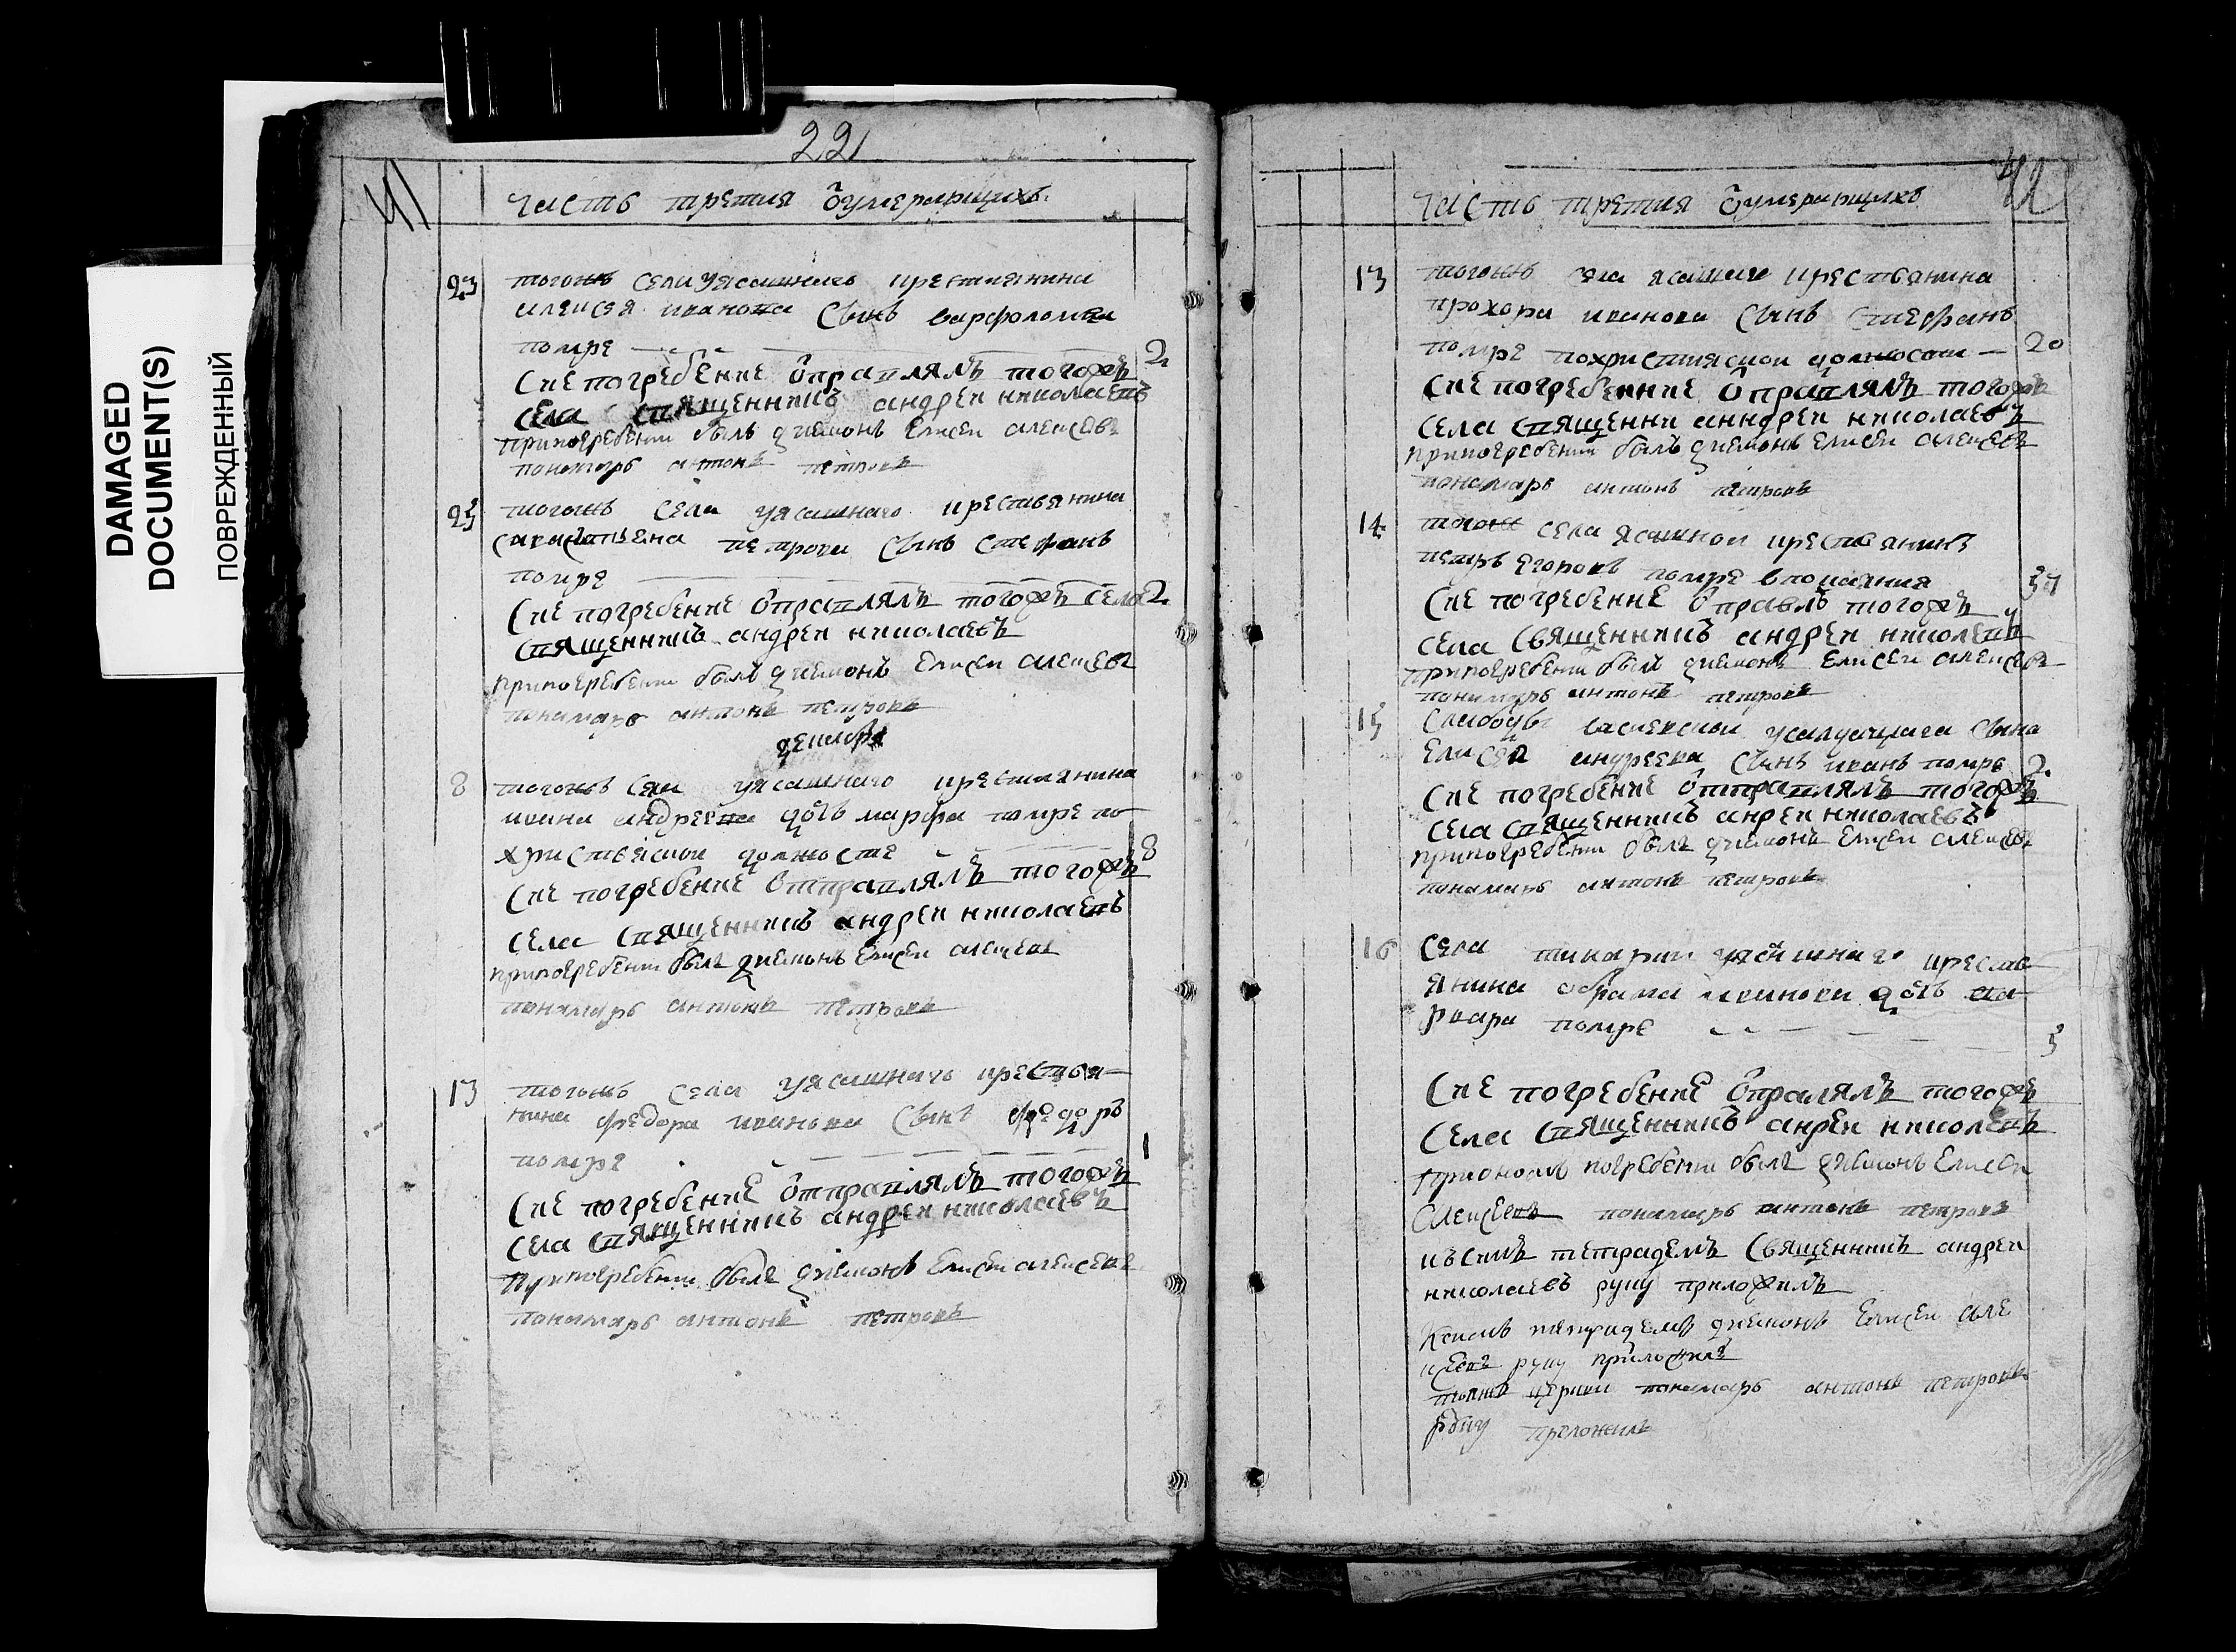 DAMAGED
DOCUMENT(S)
ПОВРЕЖДЕННЫЙ
22
41
часть третия ѿумерьрщихъ
23 тогожъ села уясашнаго крестьянина
алеѯея иванова сынъ варфоломеи
помре 2
Сие погребение ѿправлялъ тогожъ
села священникъ андреи николаевъ
припогребении былъ диаконъ Елисеи алеѯеевъ
понамарь антонъ петровъ
23 тогожъ села уясашнаго крестьянина
петрова сынъ стефанъ
помре
Сие погребение ѿправлялъ тогожъ села 2
священникъ андреи николаевъ
припогребении былъ диаконъ Елисеи алеѯеевъ
понамарь антонъ петровъ
декабря
8 тогожъ села уясашнаго крестьянина
ивана андреева дочь марфа помре по
христъяской должосте 8
Сие погребение ѿтправлялъ тогожъ
села священникъ андреи николаевъ
припогребении былъ диаконъ Елисеи алеѯеевъ
понамарь антонъ петровъ
13 тогожъ села уясашнаго крестья
нина федора иванова сынъ федоръ
помре 1
Сие погребение ѿтправлялъ тогожъ
села священникъ андреи николаевъ
припогребении былъ диаконъ Елисеи алеѯеевъ
понамарь антонъ петровъ
42
часть третия ѿумерьрщихъ
13 тогожъ села крестьянина
прохора иванова сынъ стефанъ
помре 20
Сие погребение ѿправлялъ тогожъ
села священни анндреи николаевъ
припогребении былъ диаконъ Елисеи алеѯеевъ
понамарь антонъ петровъ
14 тогоже села ясашнои крестьянинъ
петръ Егоровъ помре
Сие погребение ѿправлъ тогожъ
села священникъ андреи николевъ
припогребении былъ диаконъ Елисеи алеѯеевъ
понамарь антонъ петровъ
15 слабоды сына
Елисея андреева сынъ иванъ помре 2
Сие погребение ѿтправлялъ тогожъ
села священникъ анреи николаевъ
припогребении былъ диаконъ Елисеи алеѯеевъ
понамарь антонъ петровъ
16 села уясашнаго крестъ
янина абрама иванова дочь ва
рвара помре
Сие погребение ѿправлялъ тогожъ
села священникъ анреи николевъ
приономъ погребении былъ диаконъ Елисеи
алеѯеевъ понамарь антонъ петровъ
къ симъ тетрадемъ священникъ андреи
николаевъ руку приложилъ
Ксимъ тетрадемъ диаконъ Елисеи але
ѯеевъ руку приложилъ
тояже церкви понамарь антонъ петровъ
руку преложилъ